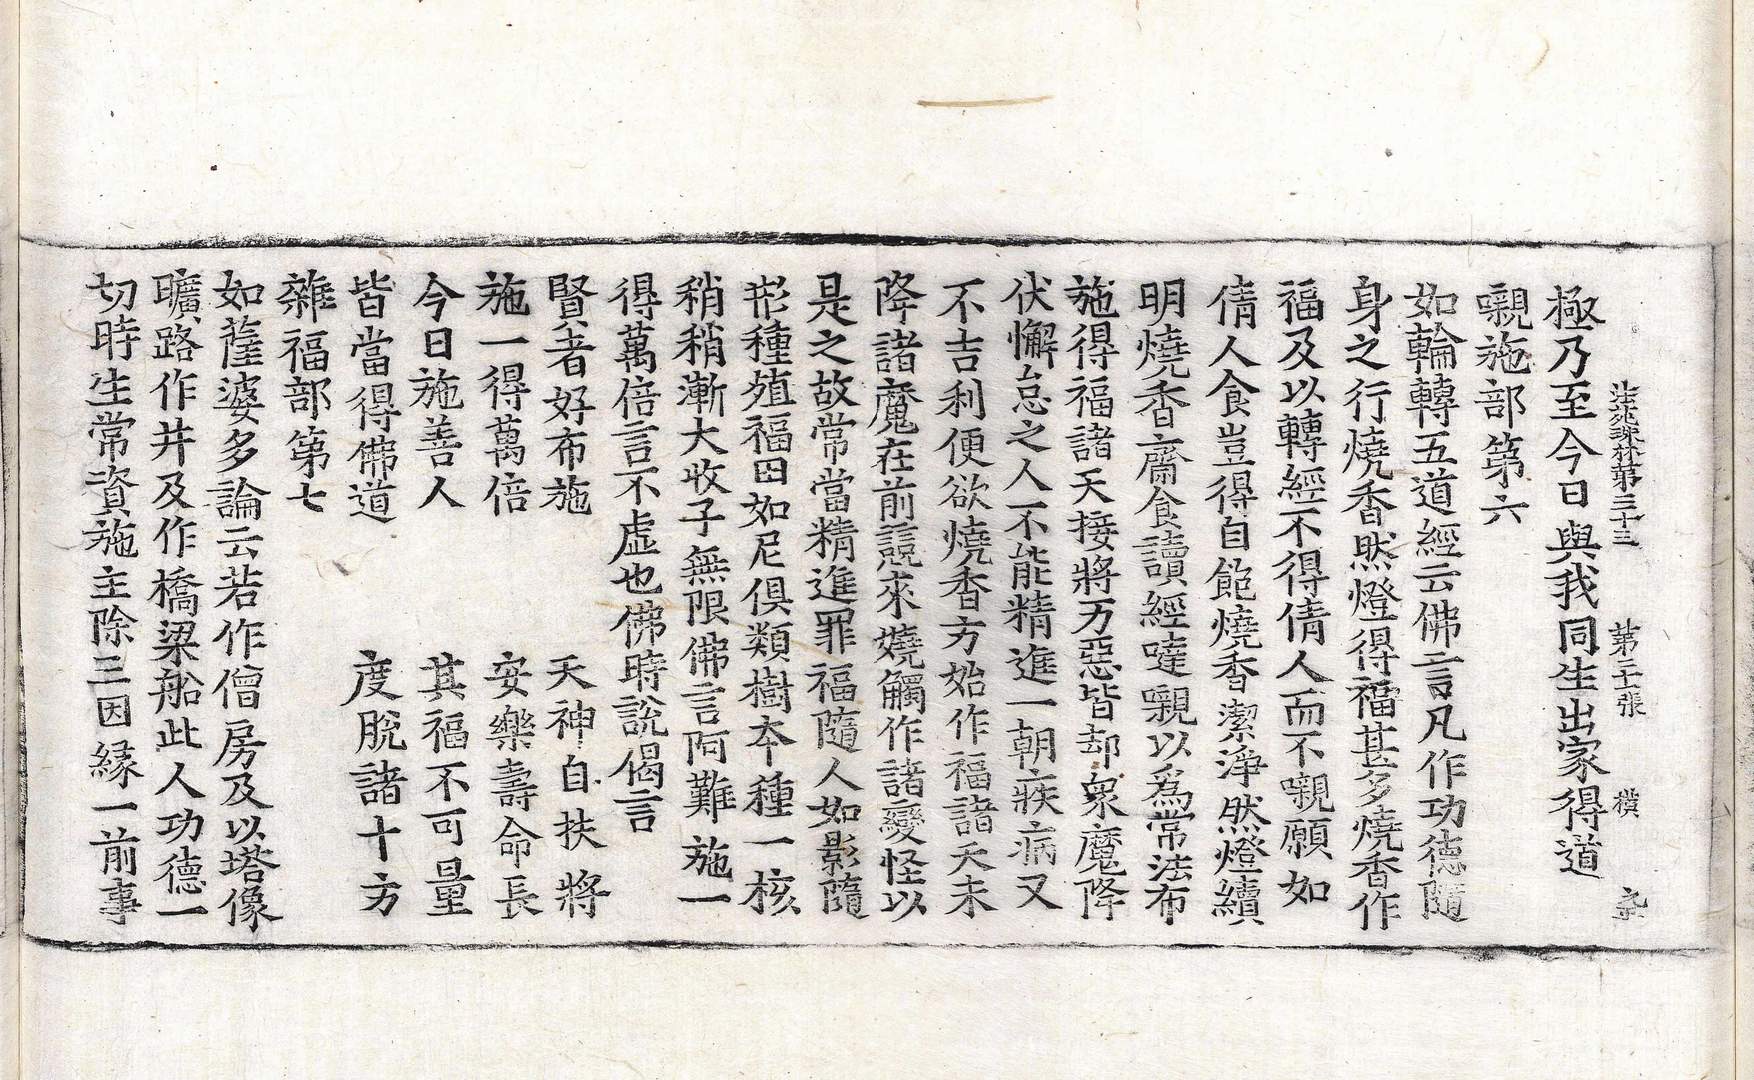 法苑珠林第三十三　第二十張　橫
極乃至今日與我同生出家得道
嚫施部第六
如輪轉五道經云佛言凡作功德隨
身之行燒香然燈得福甚多燒香作
福及以轉經不得倩人而不嚫願如
倩人食豈得自飽燒香潔淨然燈續
明燒香齋食讀經噠嚫以為常法布
施得福諸天接將万惡皆却衆魔降
伏懈怠之人不能精進一朝疾病又
不吉利便欲燒香方始作福諸天未
降諸魔在前競來嬈觸作諸變怪以
是之故常當精進罪福隨人如影隨
形種殖福田如尼俱類樹本種一核
稍稍漸大收子無限佛言阿難施一
得萬倍言不虛也佛時說偈言
賢者好布施　天神自扶將
施一得萬倍　安樂壽命長
今日施善人　其福不可量
皆當得佛道　度脫諸十方
雜福部第七
如薩婆多論云若作僧房及以塔像
曠路作井及作橋梁船此人功德一
切時生常資施主除三因緣一前事